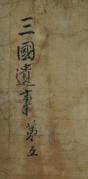 三國遺事 第五